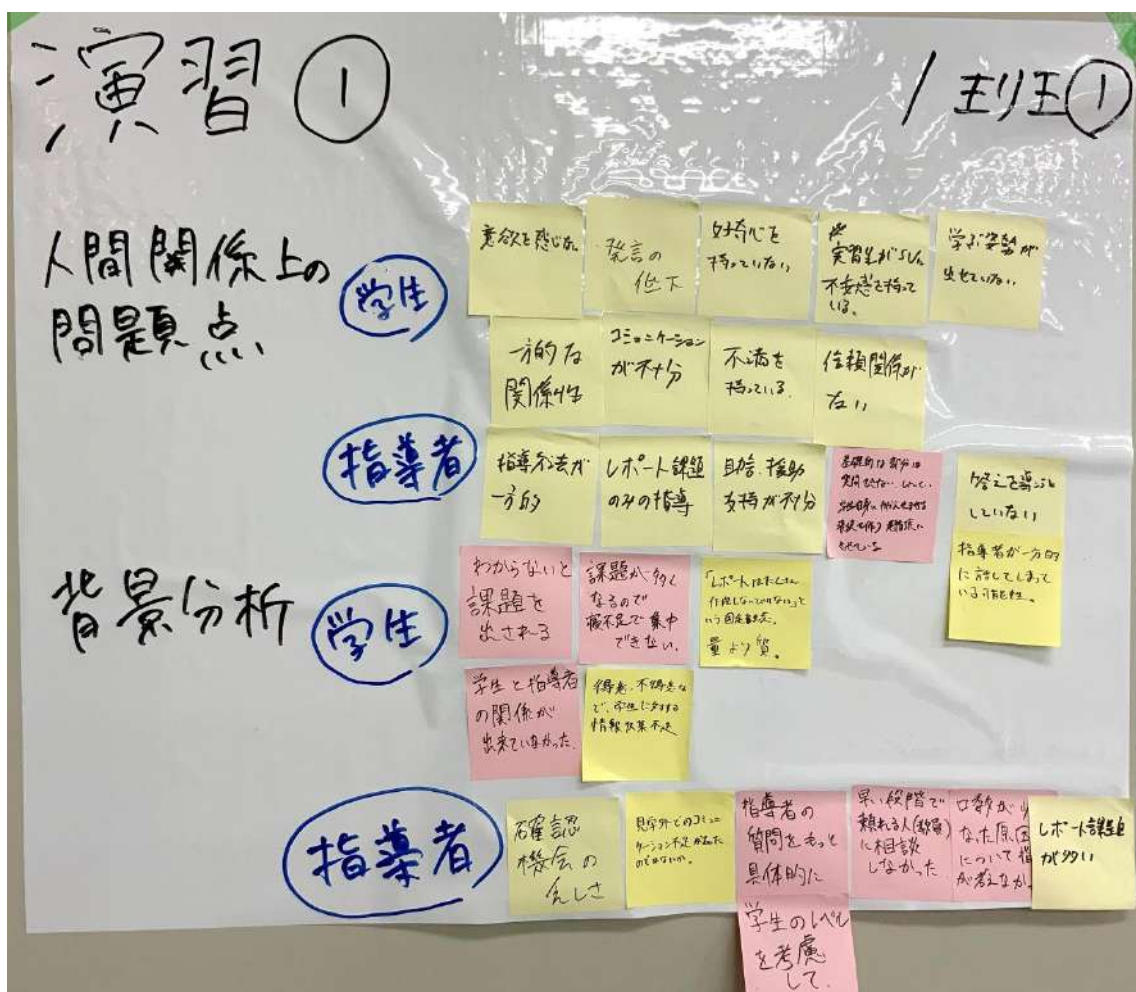 演習 ①
班①
人間関係上の
問題点
学生
発言の
低下
好奇心を
持っていない
実習生がSVに
不安感を持って
いる。
学ぶ姿勢が
出せていない
一方的な
関係性
コミュニケーション
が不十分
不満を
持っている.
信頼関係が
ない
指導者
指導方法が
一方的
レポート課題
のみの指導
助言、援助
支持が不十分
答えを導こうと
していない
指導者が一方的
に話してしまって
いる可能性。
背景分析
学生
わからないと
課題を
出される
課題が多く
なるので
寝不足で集中
できない.
「レポートはたくさん
作成しないといけない」と
いう固定観念。
量より質。
学生と指導者
の関係が
出来ていなかった.
得意、不得意な
ど、学生に対する
情報収集不足
指導者
確認
機会の
乏しさ
見学外でのコミュニ
ケーション不足があった
のではないか。
指導者の
質問をもっと
具体的に
学生のレベル
を考慮
して.
早い段階で
頼れる人(教員)
に相談
しなかった
口数が少
なった原因
について指
が考えなか
レポート課題
が多い